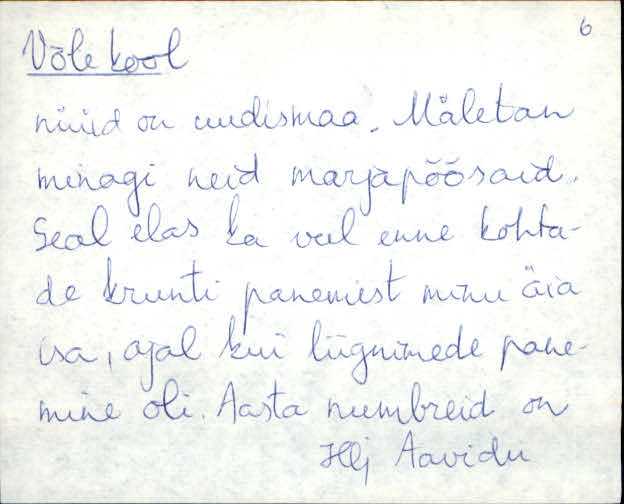 6
Võle kool
nüüd on uudismaa. Mäletan
minagi neid marjapõõsaid.
Seal elas ka veel enne kohta-
de krunti panemist minu äia
isa, ajal kui liignimede pane-
mine oli. Aasta numbreid on
Hlj Aavidu